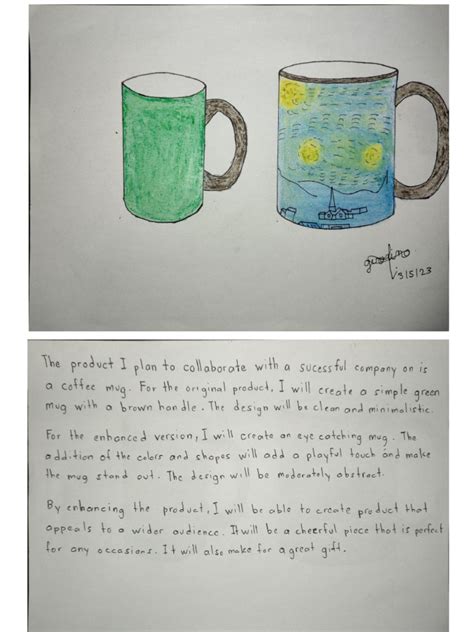 3/5/23
The product I plan to collaborate with a sucessful company on is
a coffee mug. For the original product, I will create a simple green
mug with a brown handle. The design will be clean and minimalistic.
For the enhanced version, I will create an eye catching mug. The
addition of the colors and shapes will add a playful touch and make
the mug stand out. The design will be moderately abstract.
By enhancing the product, I will be able to create product that
appeals to a wider audience. It will be a cheerful piece that is perfect
for any occasions. It will also make for a great gift.